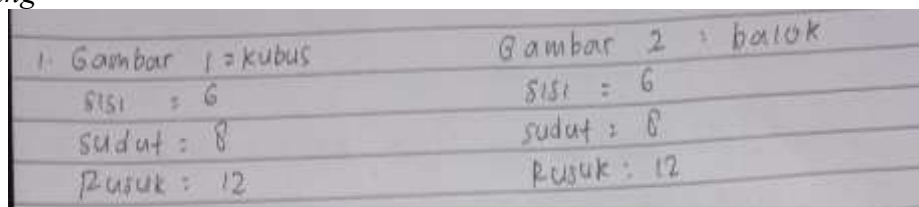 ng
1. Gambar 1 = kubus
sisi : 6
sudut : 8
Rusuk : 12
Gambar 2 : balok
sisi : 6
sudut : 8
Rusuk : 12